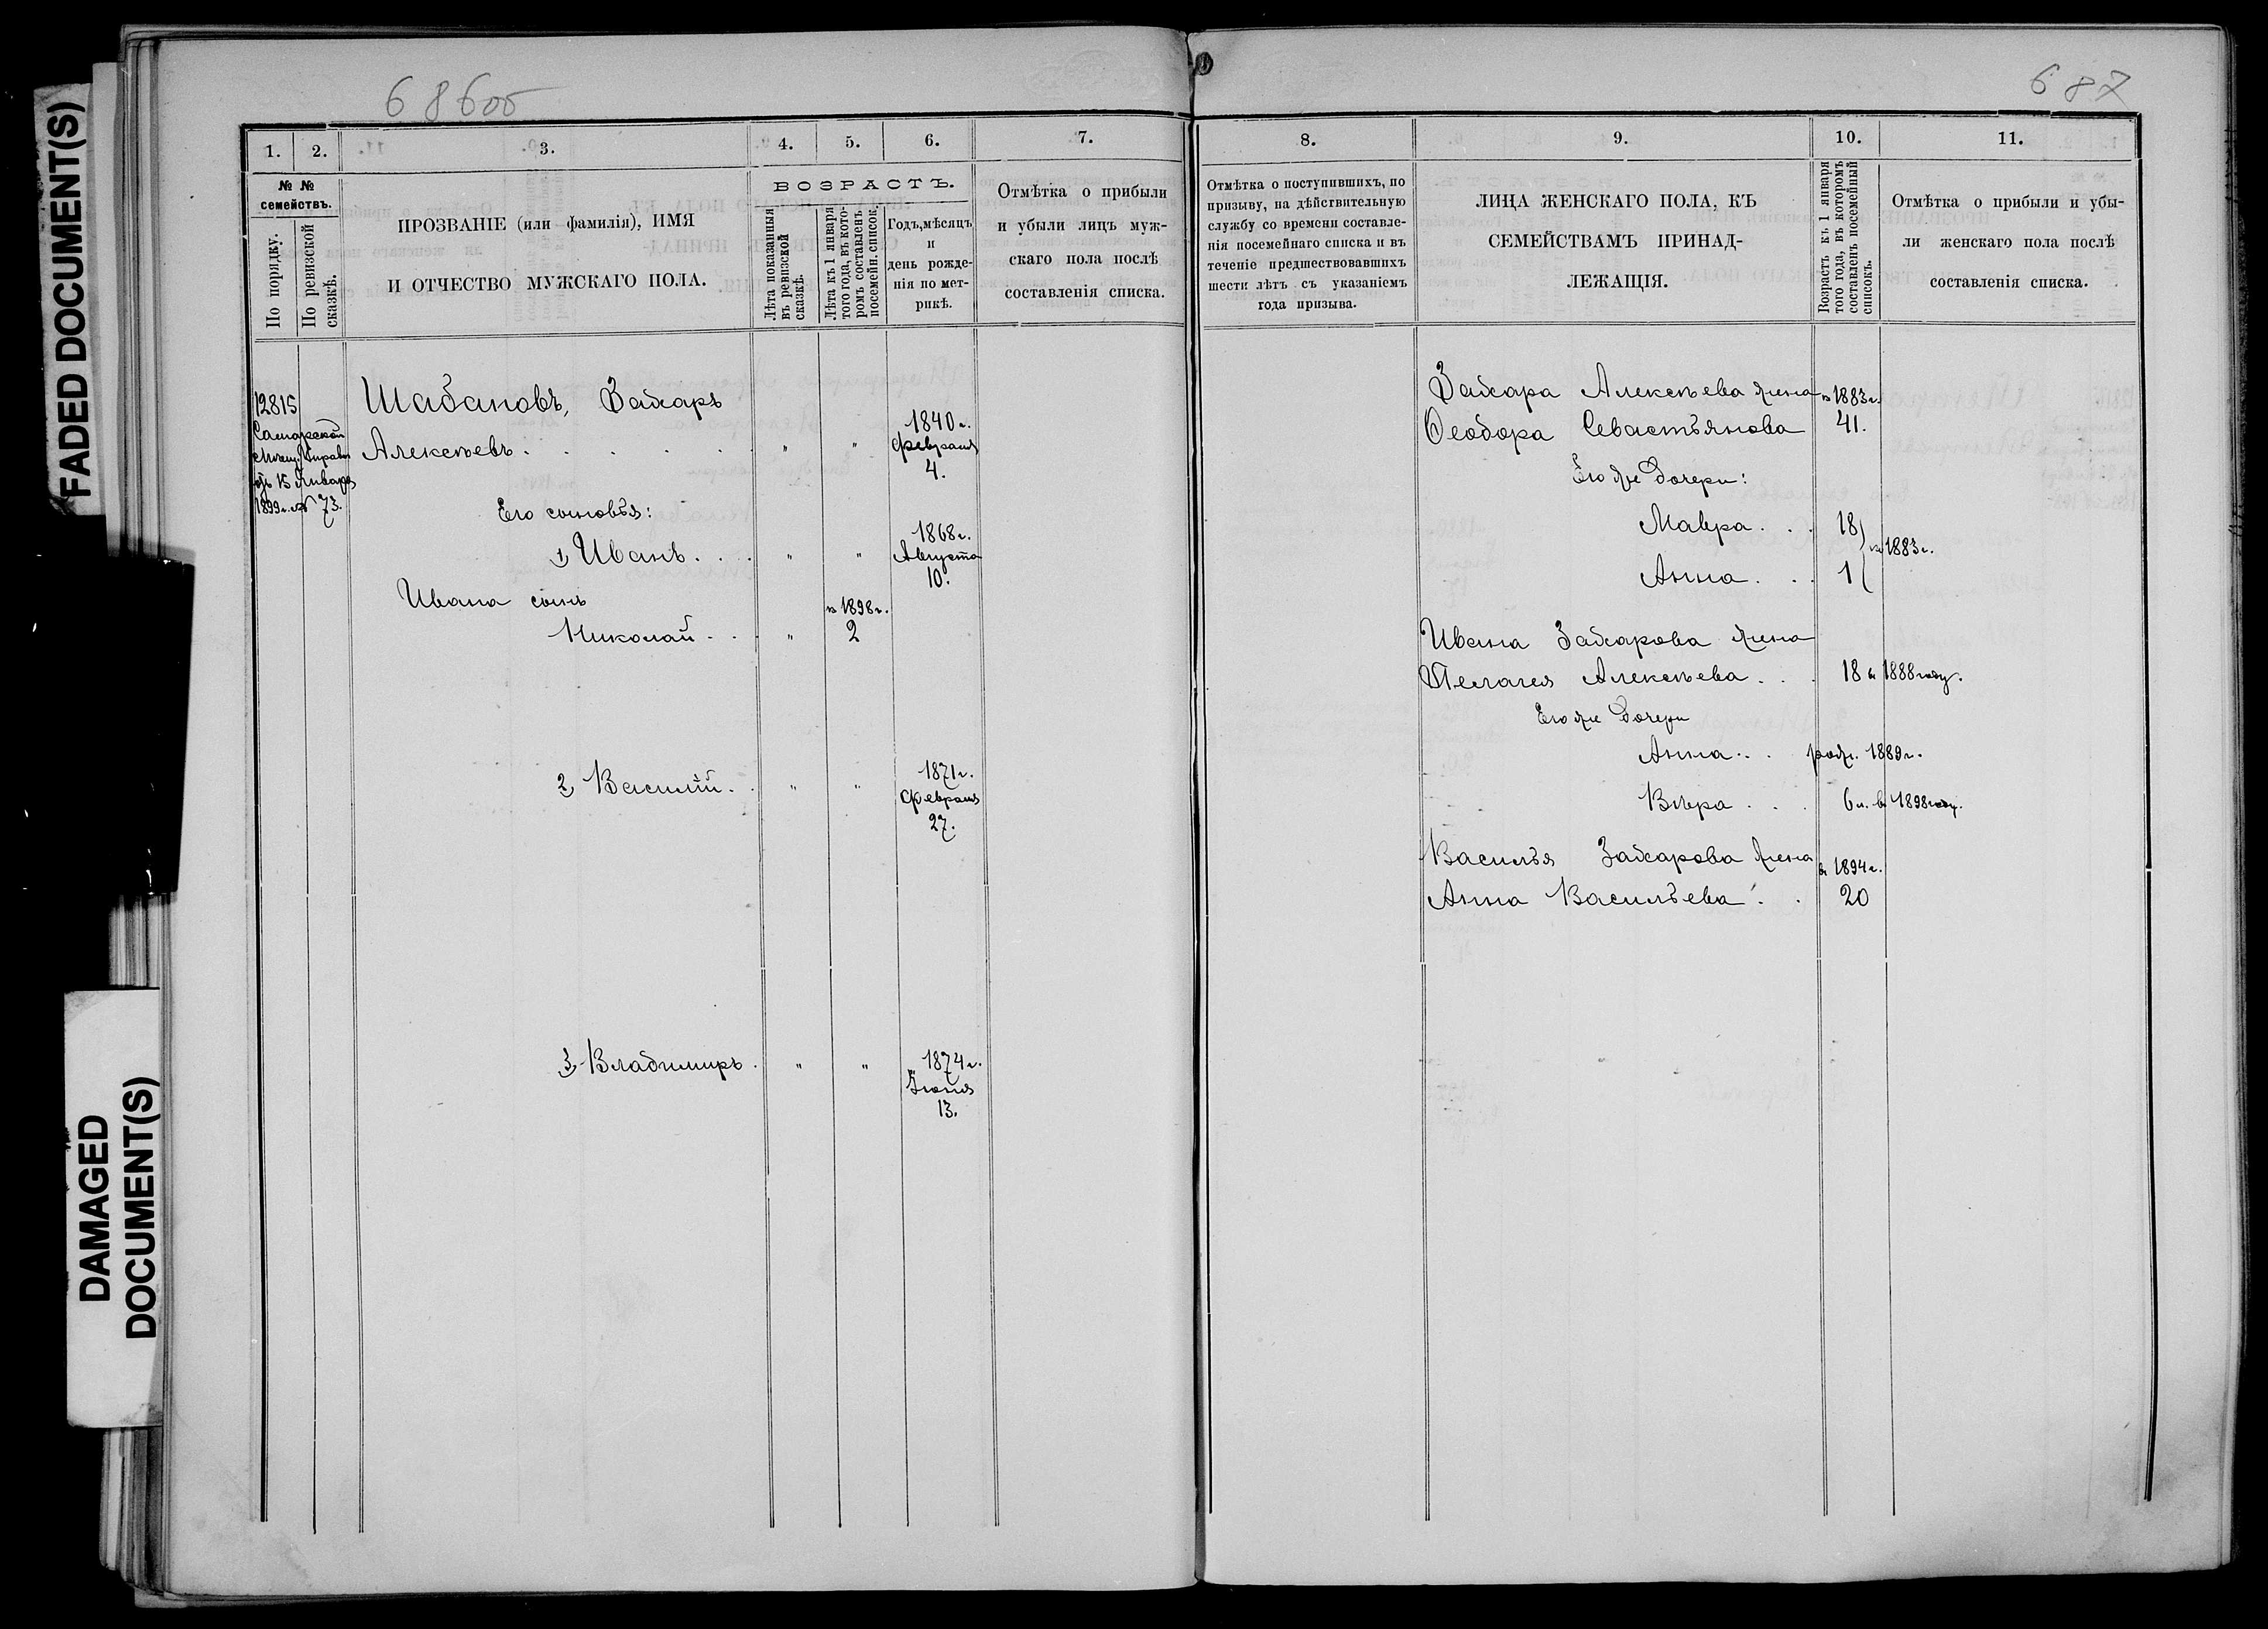 FADED DOCUMENT(S)
DAMAGED
DOCUMENT(S)
686об
1. 2. 3. 4. 5. 6. 7.
№ №
семействъ.
По порядку.
По ревизской
сказкѣ.
ПРОЗВАНІЕ (или фамилія), ИМЯ
И ОТЧЕСТВО МУЖСКАГО ПОЛА.
ВОЗРАСТЪ.
Лѣта показанныя
въ ревизской
сказкѣ.
Лѣта къ 1 января
того года, въ кото-
ромъ составленъ
посемейн. список.
Годъ, мѣсяцъ
и
день рожде-
нія по мет-
рикѣ.
Отмѣтка о прибыли
и убыли лицъ муж-
скаго пола послѣ
составленія списка.
12815
Самарской
Мѣщ. Управы
отъ 15 Января
1899 г. № 73.
Шабановъ, Захаръ
Алексѣевъ . . . . . . " " 1840 г.
Февраля
4.
Его сыновья:
1) Иванъ . . . " " 1868 г.
Августа
10.
Ивана сынъ въ 1898 г.
Николай . . . " 2
2) Василій . . " " 1871 г.
Февраля
27.
3) Владимиръ . " " 1874 г.
Іюня
13.
687
8. 9. 10. 11.
Отмѣтка о поступившихъ, по
призыву, на дѣйствительную
службу со времени составле-
нія посемейнаго списка и въ
теченіе предшествовавшихъ
шести лѣтъ съ указаніемъ
года призыва.
ЛИЦА ЖЕНСКАГО ПОЛА, КЪ
СЕМЕЙСТВАМЪ ПРИНАД-
ЛЕЖАЩІЯ.
Возрастъ къ 1 января
того года, въ которомъ
составленъ посемейный
списокъ.
Отмѣтка о прибыли и убы-
ли женскаго пола послѣ
составленія списка.
Захара Алексѣева жена въ 1883 г.
Ѳеодора Севастьянова 41.
Его же дочери:
Мавра . . . 18
въ 1883 г.
Анна . . . 1
Ивана Захарова жена
Пелагея Алексѣева . . . 18 въ 1888 году.
Его же дочери
Анна . . . родж. 1889 г.
Вѣра . . . 6 л. въ 1898 году.
Василья Захарова жена въ 1894 г.
Анна Васильева . . 20